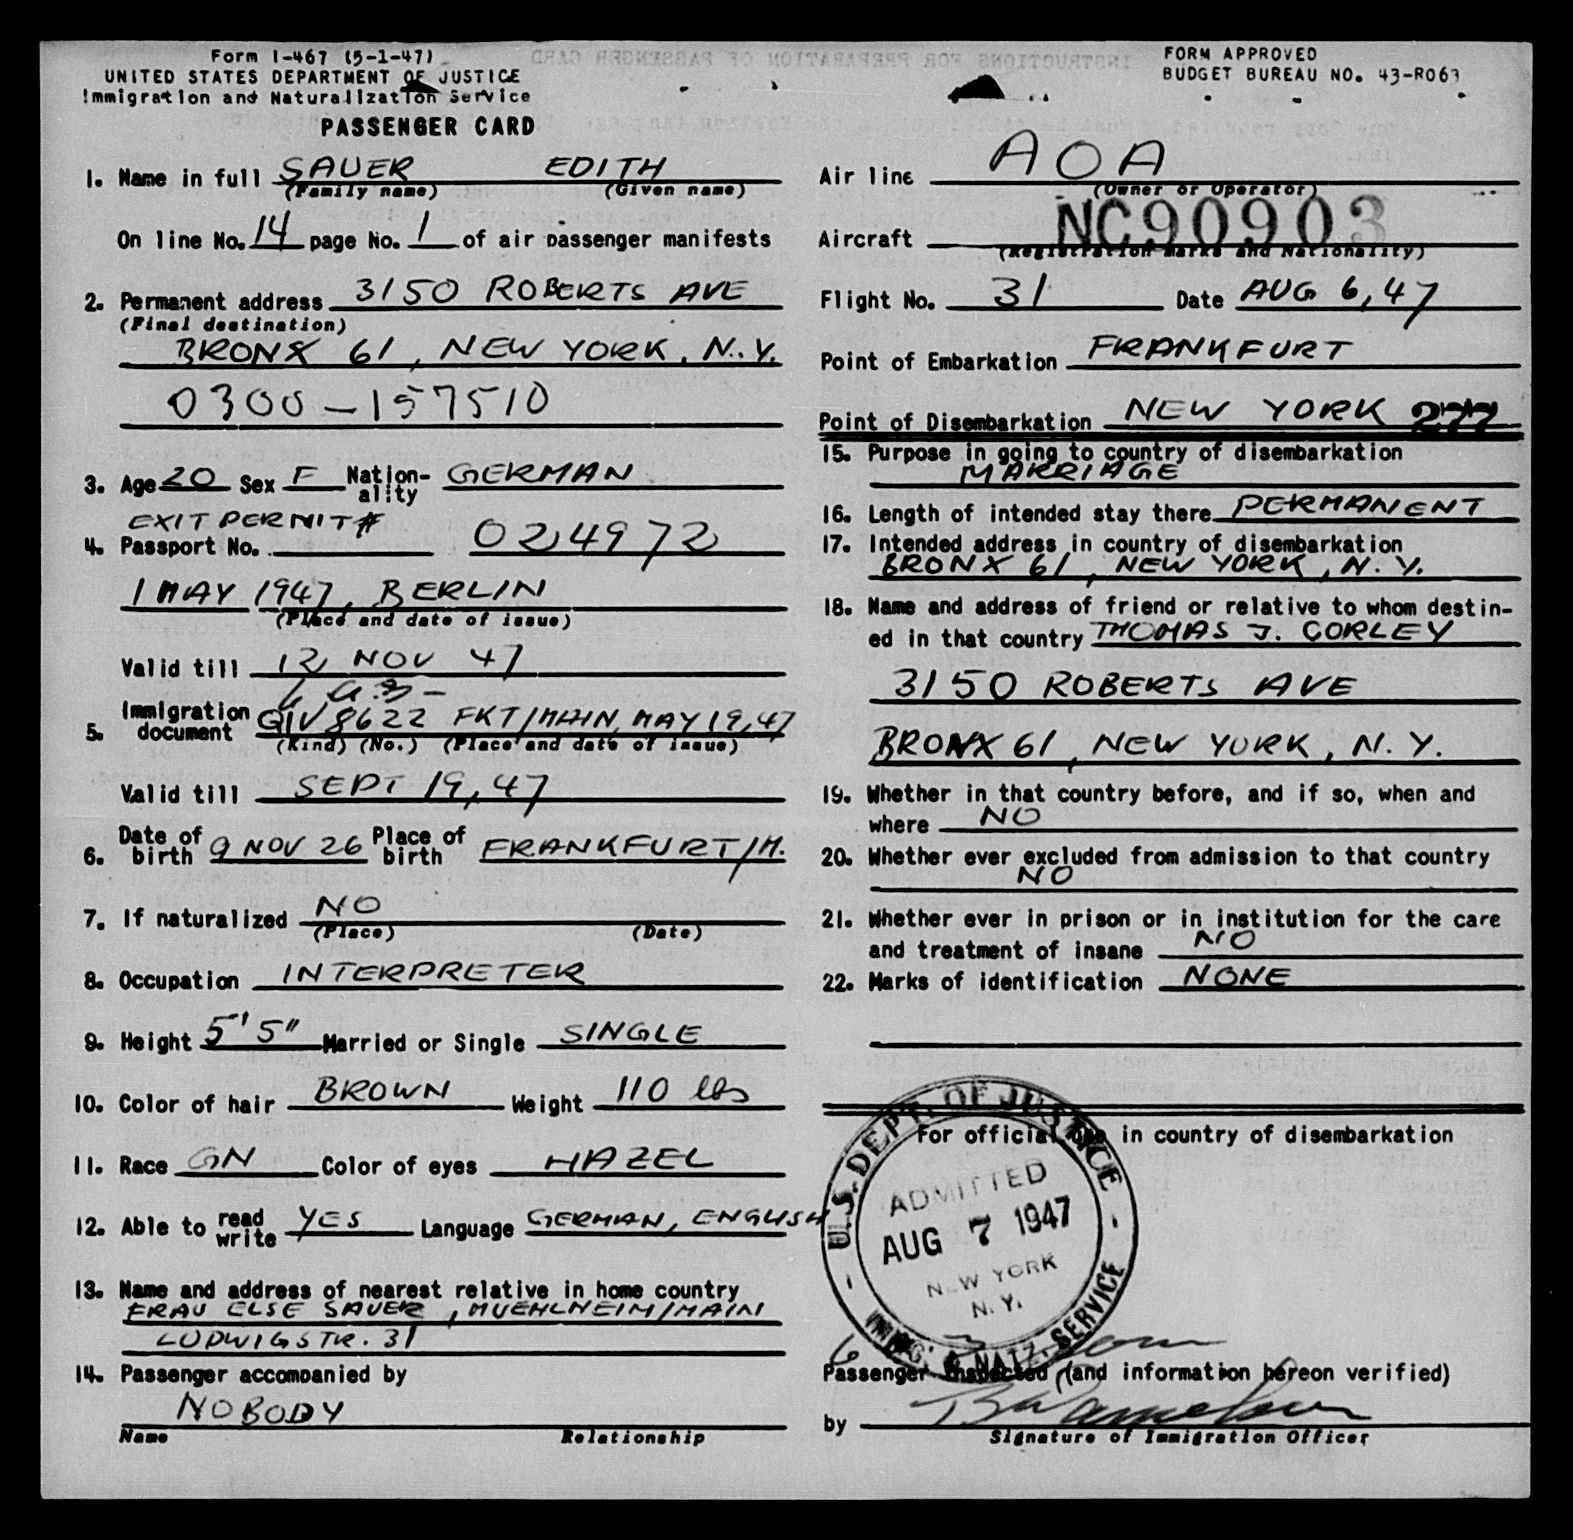 Form I-467 (5-1-47)
UNITED STATES DEPARTMENT OF JUSTICE
Immigration and Naturalization Service
PASSENGER CARD
1. Name in full SAUER EDITH
(Family name) (Given name)
On line No. 14 page No. 1 of air passenger manifests
2. Permanent address 3150 ROBERTS AVE
(Final destination)
BRONX 61, NEW YORK, N.Y.
0300-157510
3. Age 20 Sex F Nation-ality GERMAN
EXIT PERMIT #
4. Passport No. 024972
1 MAY 1947, BERLIN
(Place and date of issue)
Valid till 12 NOV 47
5. Immigration document QIV 8622 FKT/MAIN, MAY 19, 47
(Kind) (No.) (Place and date of issue)
Valid till SEPT 19, 47
6. Date of birth 9 NOV 26 Place of birth FRANKFURT/M.
7. If naturalized NO
(Place) (Date)
8. Occupation INTERPRETER
9. Height 5'5" Married or Single SINGLE
10. Color of hair BROWN Weight 110 lbs
11. Race GN Color of eyes HAZEL
12. Able to read write YES Language GERMAN, ENGLISH
13. Name and address of nearest relative in home country
FRAU ELSE SAUER, MUEHLHEIM/MAIN
LUDWIGSTR. 31
14. Passenger accompanied by
NOBODY
Name Relationship
FORM APPROVED
BUDGET BUREAU NO. 43-R063
Air line AOA
(Owner or Operator)
Aircraft NC90903
(Registration marks and Nationality)
Flight No. 31 Date AUG 6, 47
Point of Embarkation FRANKFURT
Point of Disembarkation NEW YORK 277
15. Purpose in going to country of disembarkation
MARRIAGE
16. Length of intended stay there PERMANENT
17. Intended address in country of disembarkation
BRONX 61, NEW YORK, N.Y.
18. Name and address of friend or relative to whom destin-
ed in that country THOMAS J. CORLEY
3150 ROBERTS AVE
BRONX 61, NEW YORK, N.Y.
19. Whether in that country before, and if so, when and
where NO
20. Whether ever excluded from admission to that country
NO
21. Whether ever in prison or in institution for the care
and treatment of insane NO
22. Marks of identification NONE
For official use in country of disembarkation
U.S. DEPT. OF JUSTICE
ADMITTED
AUG 7 1947
NEW YORK
N.Y.
IMMIG. & NATZ. SERVICE
Passenger inspected (and information hereon verified)
by
Signature of Immigration Officer